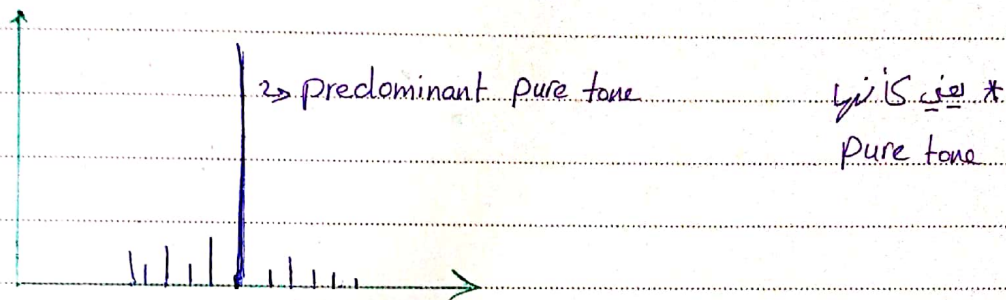 2→ predominant pure tone
* يعني كأنها
pure tone